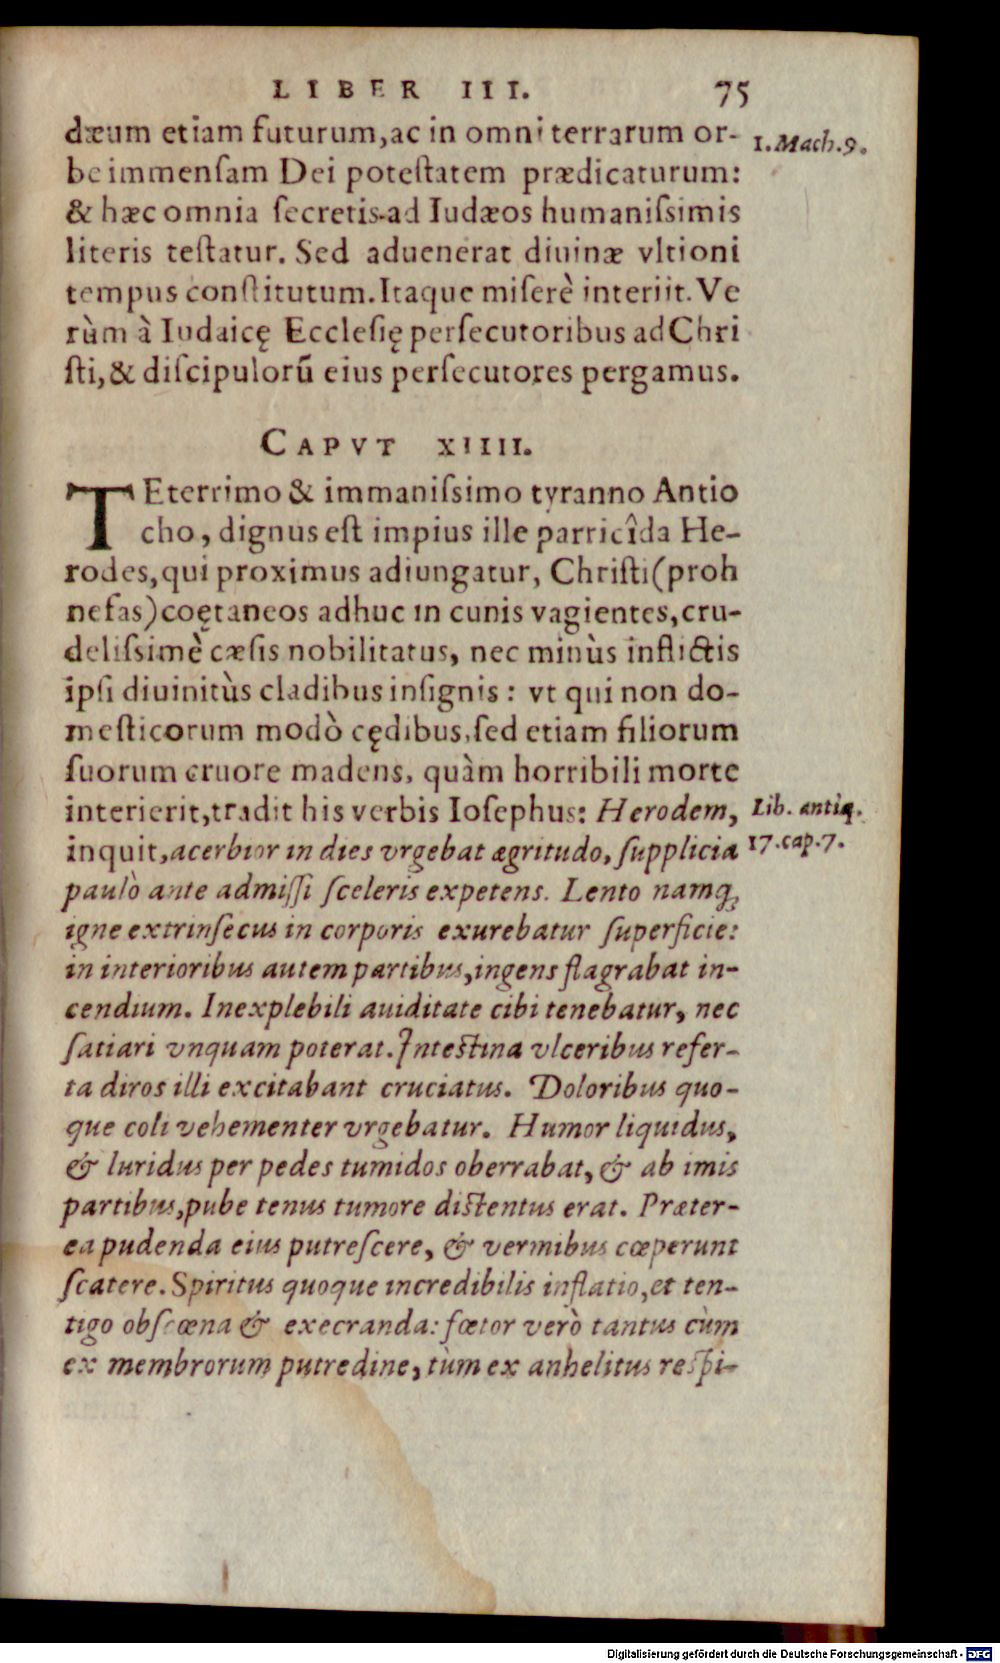 LIBER III. 75
dæum etiam futurum, ac in omni terrarum or-
be immensam Dei potestatem prædicaturum:
& hæc omnia secretis ad Iudæos humanissimis
literis testatur. Sed aduenerat diuinæ vltioni
tempus constitutum. Itaque miserè interiit. Ve
rùm à Iudaicę Ecclesię persecutoribus ad Chri
sti, & discipulorũ eius persecutores pergamus.
1. Mach. 9.
CAPVT XIIII.
TEterrimo & immanissimo tyranno Antio
cho, dignus est impius ille parricîda He-
rodes, qui proximus adiungatur, Christi (proh
nefas) coętaneos adhuc in cunis vagientes, cru-
delissimè cæsis nobilitatus, nec minùs inflictis
ipsi diuinitùs cladibus insignis: vt qui non do-
mesticorum modò cędibus, sed etiam filiorum
suorum cruore madens, quàm horribili morte
interierit, tradit his verbis Iosephus: Herodem,
inquit, acerbior in dies vrgebat ægritudo, supplicia
paulò ante admissi sceleris expetens. Lento namq;
igne extrinsecus in corporis exurebatur superficie:
in interioribus autem partibus, ingens flagrabat in-
cendium. Inexplebili auiditate cibi tenebatur, nec
satiari vnquam poterat. Intestina vlceribus refer-
ta diros illi excitabant cruciatus. Doloribus quo-
que coli vehementer vrgebatur. Humor liquidus,
& luridus per pedes tumidos oberrabat, & ab imis
partibus, pube tenus tumore distentus erat. Præter-
ea pudenda eius putrescere, & vermibus cœperunt
scatere. Spiritus quoque incredibilis inflatio, et ten-
tigo obscœna & execranda: fœtor verò tantus cùm
ex membrorum putredine, tùm ex anhelitus respi-
Lib. antiq.
17. cap. 7.
Digitalisierung gefördert durch die Deutsche Forschungsgemeinschaft - DFG